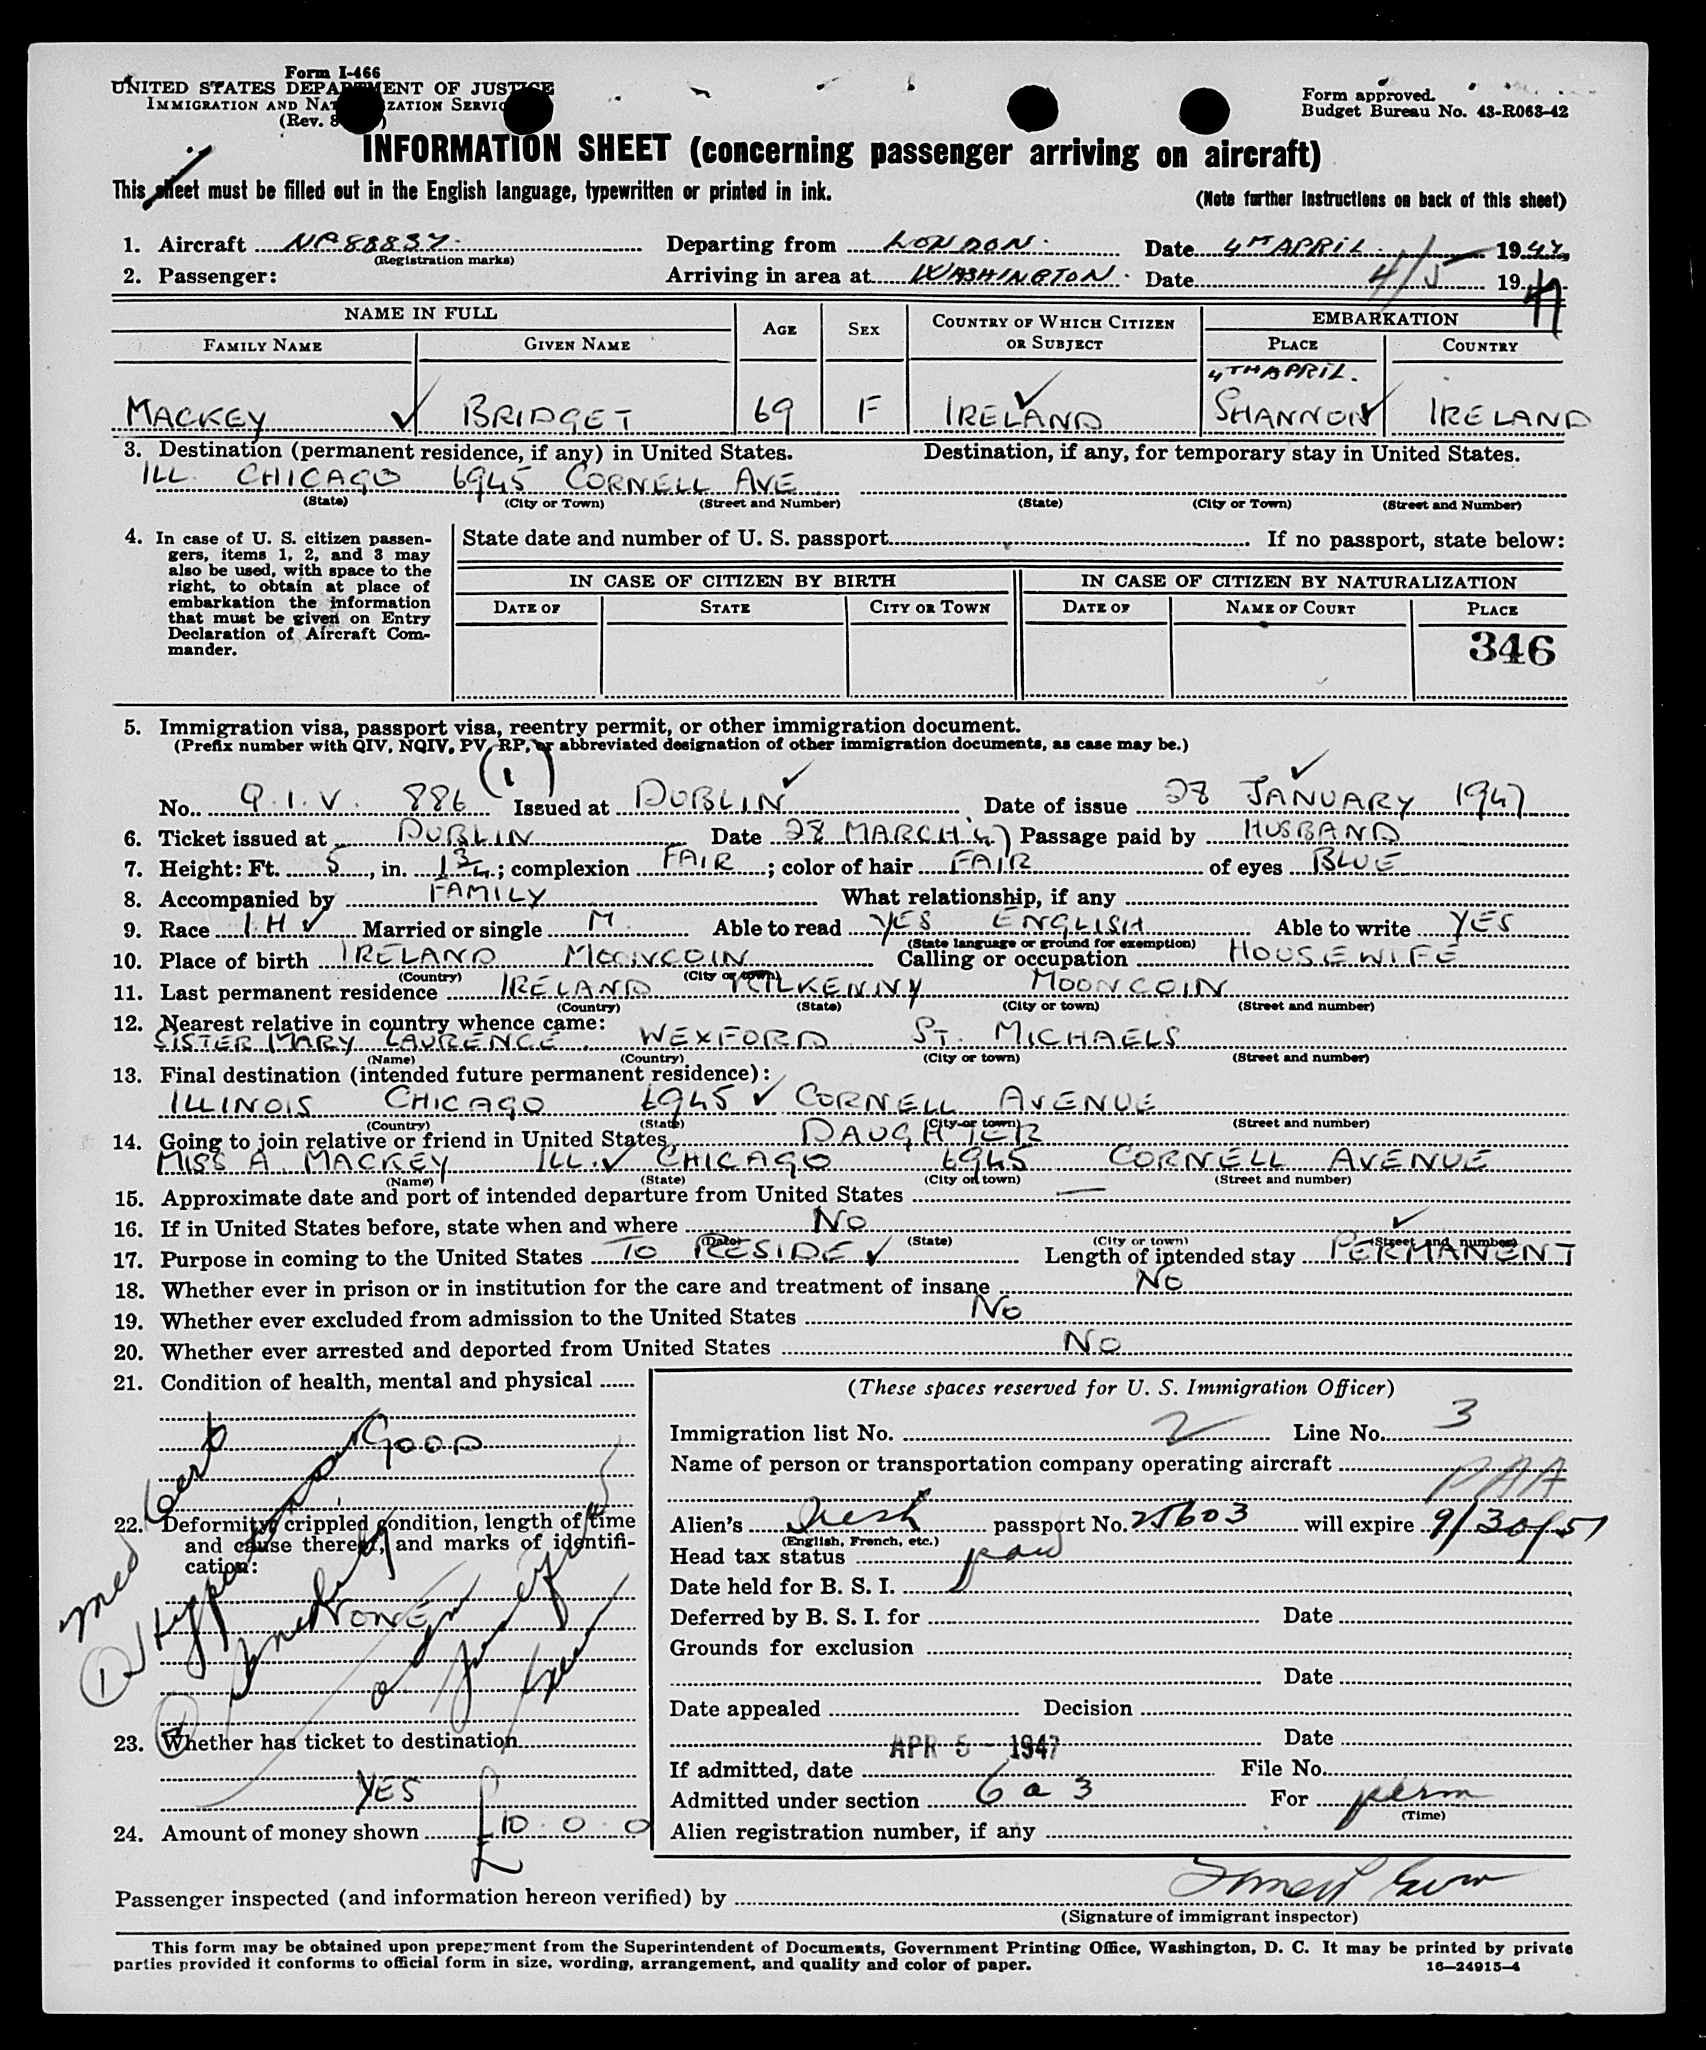 Form I-466
UNITED STATES DEPARTMENT OF JUSTICE
IMMIGRATION AND NATURALIZATION SERVICE
(Rev. 8 )
Form approved.
Budget Bureau No. 43-R063-42
INFORMATION SHEET (concerning passenger arriving on aircraft)
This sheet must be filled out in the English language, typewritten or printed in ink.
(Note further instructions on back of this sheet)
1. Aircraft NC88837 Departing from LONDON. Date 4TH APRIL. 1947,
(Registration marks)
2. Passenger: Arriving in area at WASHINGTON. Date 4/5 1947
NAME IN FULL AGE SEX COUNTRY OF WHICH CITIZEN OR SUBJECT EMBARKATION
FAMILY NAME GIVEN NAME PLACE COUNTRY
4TH APRIL.
MACKEY BRIDGET 69 F IRELAND SHANNON IRELAND
3. Destination (permanent residence, if any) in United States. Destination, if any, for temporary stay in United States.
ILL. CHICAGO 6945 CORNELL AVE
(State) (City or Town) (Street and Number) (State) (City or Town) (Street and Number)
4. In case of U. S. citizen passen-
gers, items 1, 2, and 3 may
also be used, with space to the
right, to obtain at place of
embarkation the information
that must be given on Entry
Declaration of Aircraft Com-
mander.
State date and number of U. S. passport If no passport, state below:
IN CASE OF CITIZEN BY BIRTH IN CASE OF CITIZEN BY NATURALIZATION
DATE OF STATE CITY OR TOWN DATE OF NAME OF COURT PLACE
346
5. Immigration visa, passport visa, reentry permit, or other immigration document.
(Prefix number with QIV, NQIV, PV, RP, or abbreviated designation of other immigration documents, as case may be.)
(1)
No. Q.I.V. 886 Issued at DUBLIN Date of issue 28 JANUARY 1947
6. Ticket issued at DUBLIN Date 28 MARCH 47 Passage paid by HUSBAND
7. Height: Ft. 5, in. 1 3/4; complexion FAIR; color of hair FAIR of eyes BLUE
8. Accompanied by FAMILY What relationship, if any
9. Race I.H Married or single M. Able to read YES ENGLISH Able to write YES
(State language or ground for exemption)
10. Place of birth IRELAND MOONCOIN Calling or occupation HOUSEWIFE
(Country) (City or town)
11. Last permanent residence IRELAND KILKENNY MOONCOIN
(Country) (State) (City or town) (Street and number)
12. Nearest relative in country whence came:
SISTER MARY LAURENCE. WEXFORD ST. MICHAELS
(Name) (Country) (City or town) (Street and number)
13. Final destination (intended future permanent residence):
ILLINOIS CHICAGO 6945 CORNELL AVENUE
(Country) (State) (City or town) (Street and number)
14. Going to join relative or friend in United States DAUGHTER
MISS A MACKEY ILL. CHICAGO 6945 CORNELL AVENUE
(Name) (State) (City or town) (Street and number)
15. Approximate date and port of intended departure from United States —
16. If in United States before, state when and where NO
(Date) (State) (City or town) (Street and number)
17. Purpose in coming to the United States TO RESIDE Length of intended stay PERMANENT
18. Whether ever in prison or in institution for the care and treatment of insane NO
19. Whether ever excluded from admission to the United States NO
20. Whether ever arrested and deported from United States NO
21. Condition of health, mental and physical
GOOD
med cert
22. Deformity, crippled condition, length of time
and cause thereof, and marks of identifi-
cation:
NONE
23. Whether has ticket to destination
YES
24. Amount of money shown £10.0.0
(These spaces reserved for U. S. Immigration Officer)
Immigration list No. 2 Line No. 3
Name of person or transportation company operating aircraft PAA
Alien's Irish passport No. 25603 will expire 9/30/51
(English, French, etc.)
Head tax status paid
Date held for B. S. I.
Deferred by B. S. I. for Date
Grounds for exclusion
Date
Date appealed Decision
Date
APR 5 - 1947
If admitted, date File No.
Admitted under section 6 a 3 For perm
(Time)
Alien registration number, if any
Passenger inspected (and information hereon verified) by
(Signature of immigrant inspector)
This form may be obtained upon prepayment from the Superintendent of Documents, Government Printing Office, Washington, D. C. It may be printed by private
parties provided it conforms to official form in size, wording, arrangement, and quality and color of paper.
16—24915-4